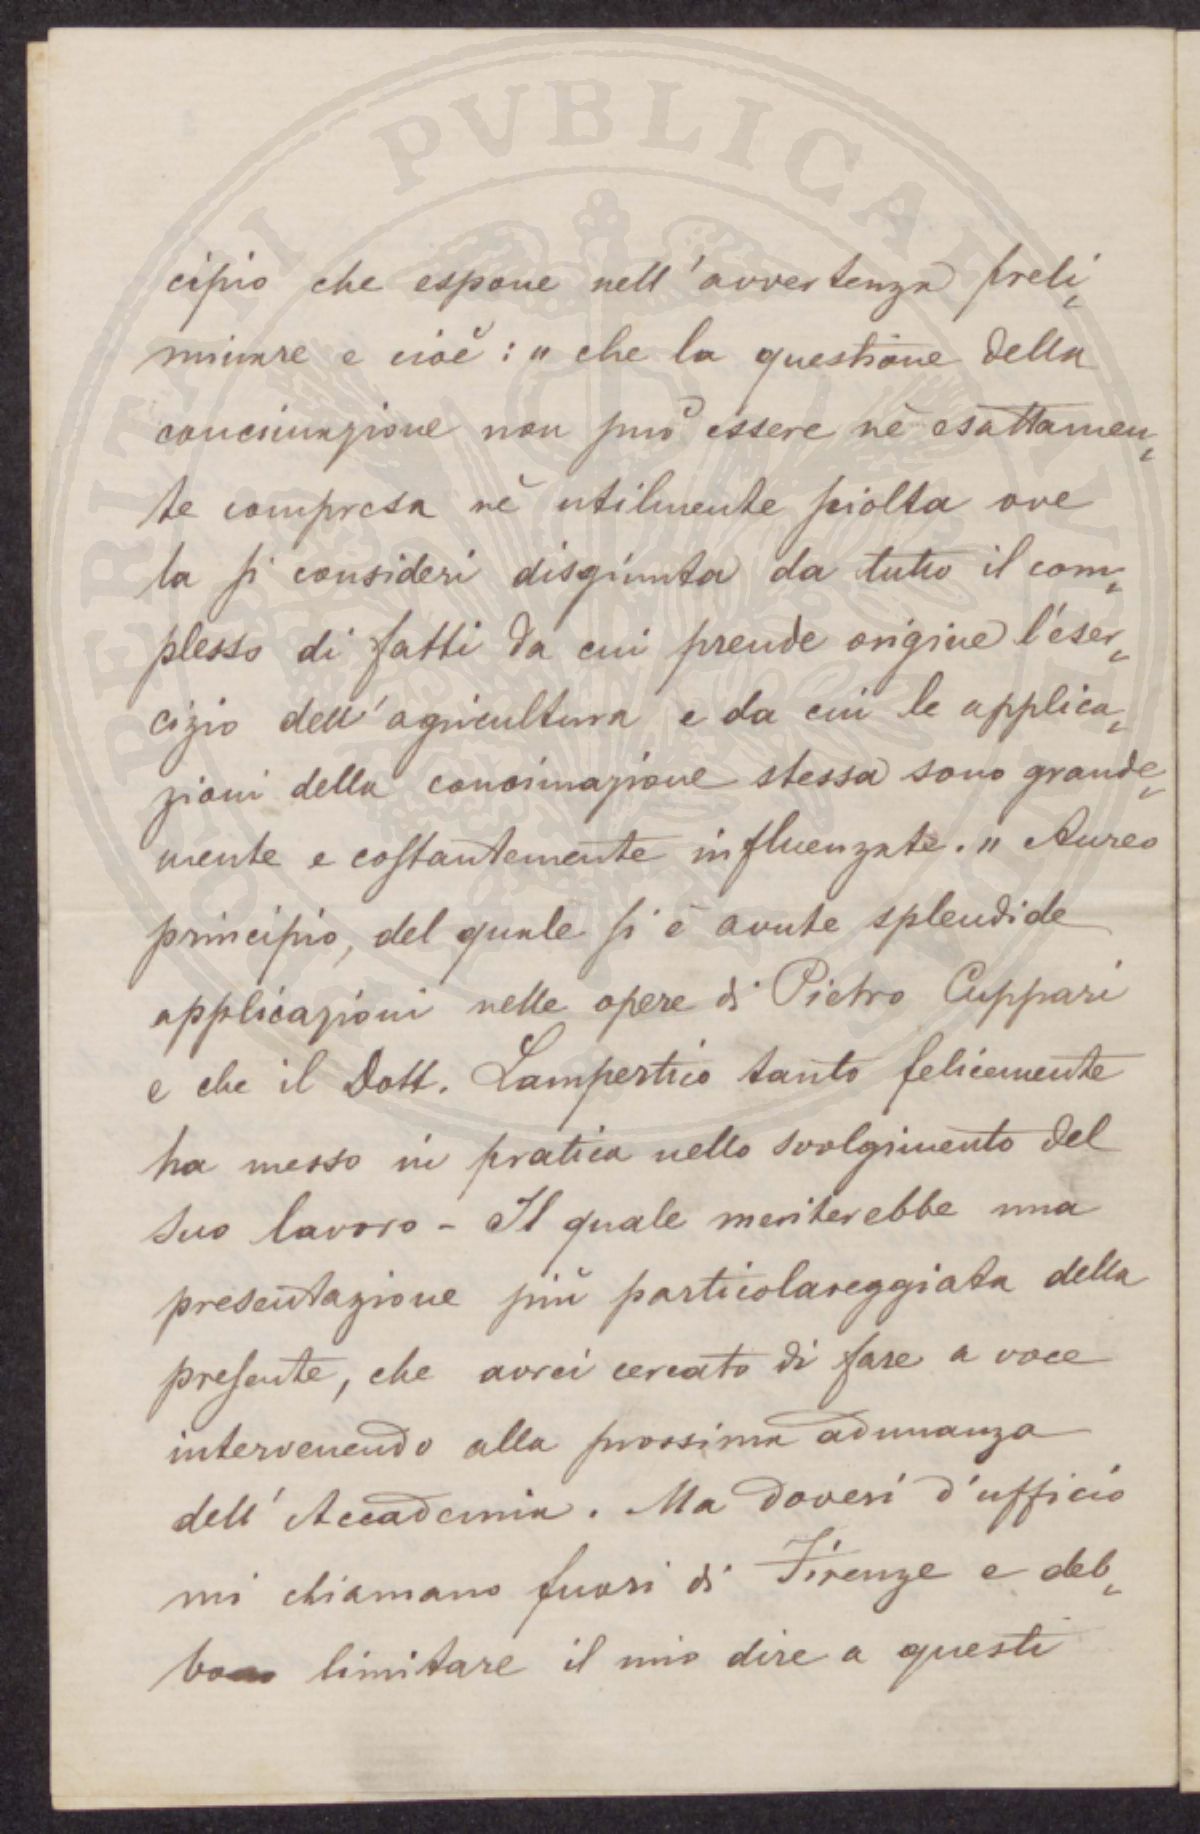 PROSPERITATI PVBLICAE AVGENDAE
cipio che espone nell'avvertenza preli,
minare e cioè: " che la questione della
concimazione non può essere nè esattamen,
te compresa nè utilmente sciolta ove
la si consideri disgiunta da tutto il com,
plesso di fatti da cui prende origine l'eser,
cizio dell'agricultura e da cui le applica,
zioni della concimazione stessa sono grande,
mente e costantemente influenzate. " Aureo
principio, del quale si è avute splendide
applicazioni nelle opere di Pietro Cuppari
e che il Dott. Lampertico tanto felicemente
ha messo in pratica nello svolgimento del
suo lavoro - Il quale meriterebbe una
presentazione più particolareggiata della
presente, che avrei cercato di fare a voce
intervenendo alla prossima adunanza
dell'Accademia. Ma doveri d'ufficio
mi chiamano fuori di Firenze e deb,
bo limitare il mio dire a questi